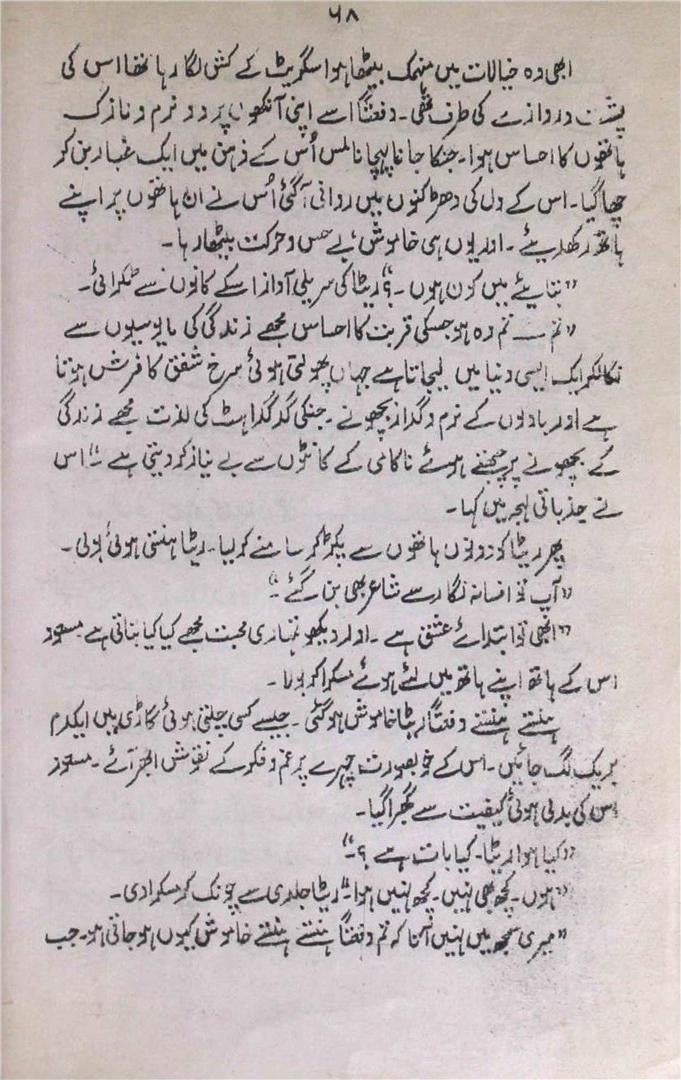 ۶۸
ابھی وہ خیالات میں منہمک بیٹھا ہوا سگریٹ کے کش لگا رہا تھا اس کی
پشت دروازے کی طرف تھی۔ دفعتاً اسے اپنی آنکھوں پر دو نرم و نازک
ہاتھوں کا احساس ہوا۔ جنکا جانا پہچانا لمس اُس کے ذہن میں ایک غبار بن کر
چھا گیا۔ اس کے دل کی دھڑکنوں میں روانی آ گئی اُس نے ان ہاتھوں پر اپنے
ہاتھ رکھدیئے۔ اور یوں ہی خاموش بے حس و حرکت بیٹھا رہا۔
”بتایئے میں کون ہوں۔؟“ ریٹا کی سریلی آواز اسکے کانوں سے ٹکرائی۔
”تم — تم وہ ہو جسکی قربت کا احساس مجھے زندگی کی مایوسیوں سے
نکالکر ایک ایسی دنیا میں لیجاتا ہے جہاں پھولتی ہوئی سرخ شفق کا فرش ہوتا
ہے اور بادلوں کے نرم و گداز بچھونے۔ جنکی گدگداہٹ کی لذت مجھے زندگی
کے بچھونے پر چبھتے ہوئے ناکامی کے کانٹوں سے بے نیاز کر دیتی ہے۔“ اس
نے جذباتی لہجہ میں کہا۔
پھر ریٹا کو دونوں ہاتھوں سے پکڑ کر سامنے کر لیا۔ ریٹا ہنستی ہوئی بولی۔
”آپ تو افسانہ نگار سے شاعر بھی بن گئے۔“
”ابھی تو ابتدائے عشق ہے۔ اور دیکھو تمہاری محبت مجھے کیا کیا بناتی ہے مسعود
اس کے ہاتھ اپنے ہاتھ میں لئے ہوئے مسکرا کر بولا۔
ہنستے ہنستے دفعتاً ریٹا خاموش ہو گئی۔ جیسے کسی چلتی ہوئی گاڑی میں ایکدم
بریک لگ جائیں۔ اس کے خوبصورت چہرے پر غم و فکر کے نقوش ابھر آئے۔ مسعود
اس کی بدلی ہوئی کیفیت سے گھبرا گیا۔
”کیا ہوا ریٹا۔ کیا بات ہے ؟۔“
”ہوں۔ کچھ بھی نہیں۔ کچھ نہیں ہوا۔“ ریٹا جلدی سے چونک کر مسکرا دی۔
”میری سمجھ میں نہیں آتا کہ تم دفعتاً ہنستے ہنستے خاموش کیوں ہو جاتی ہو۔ جب